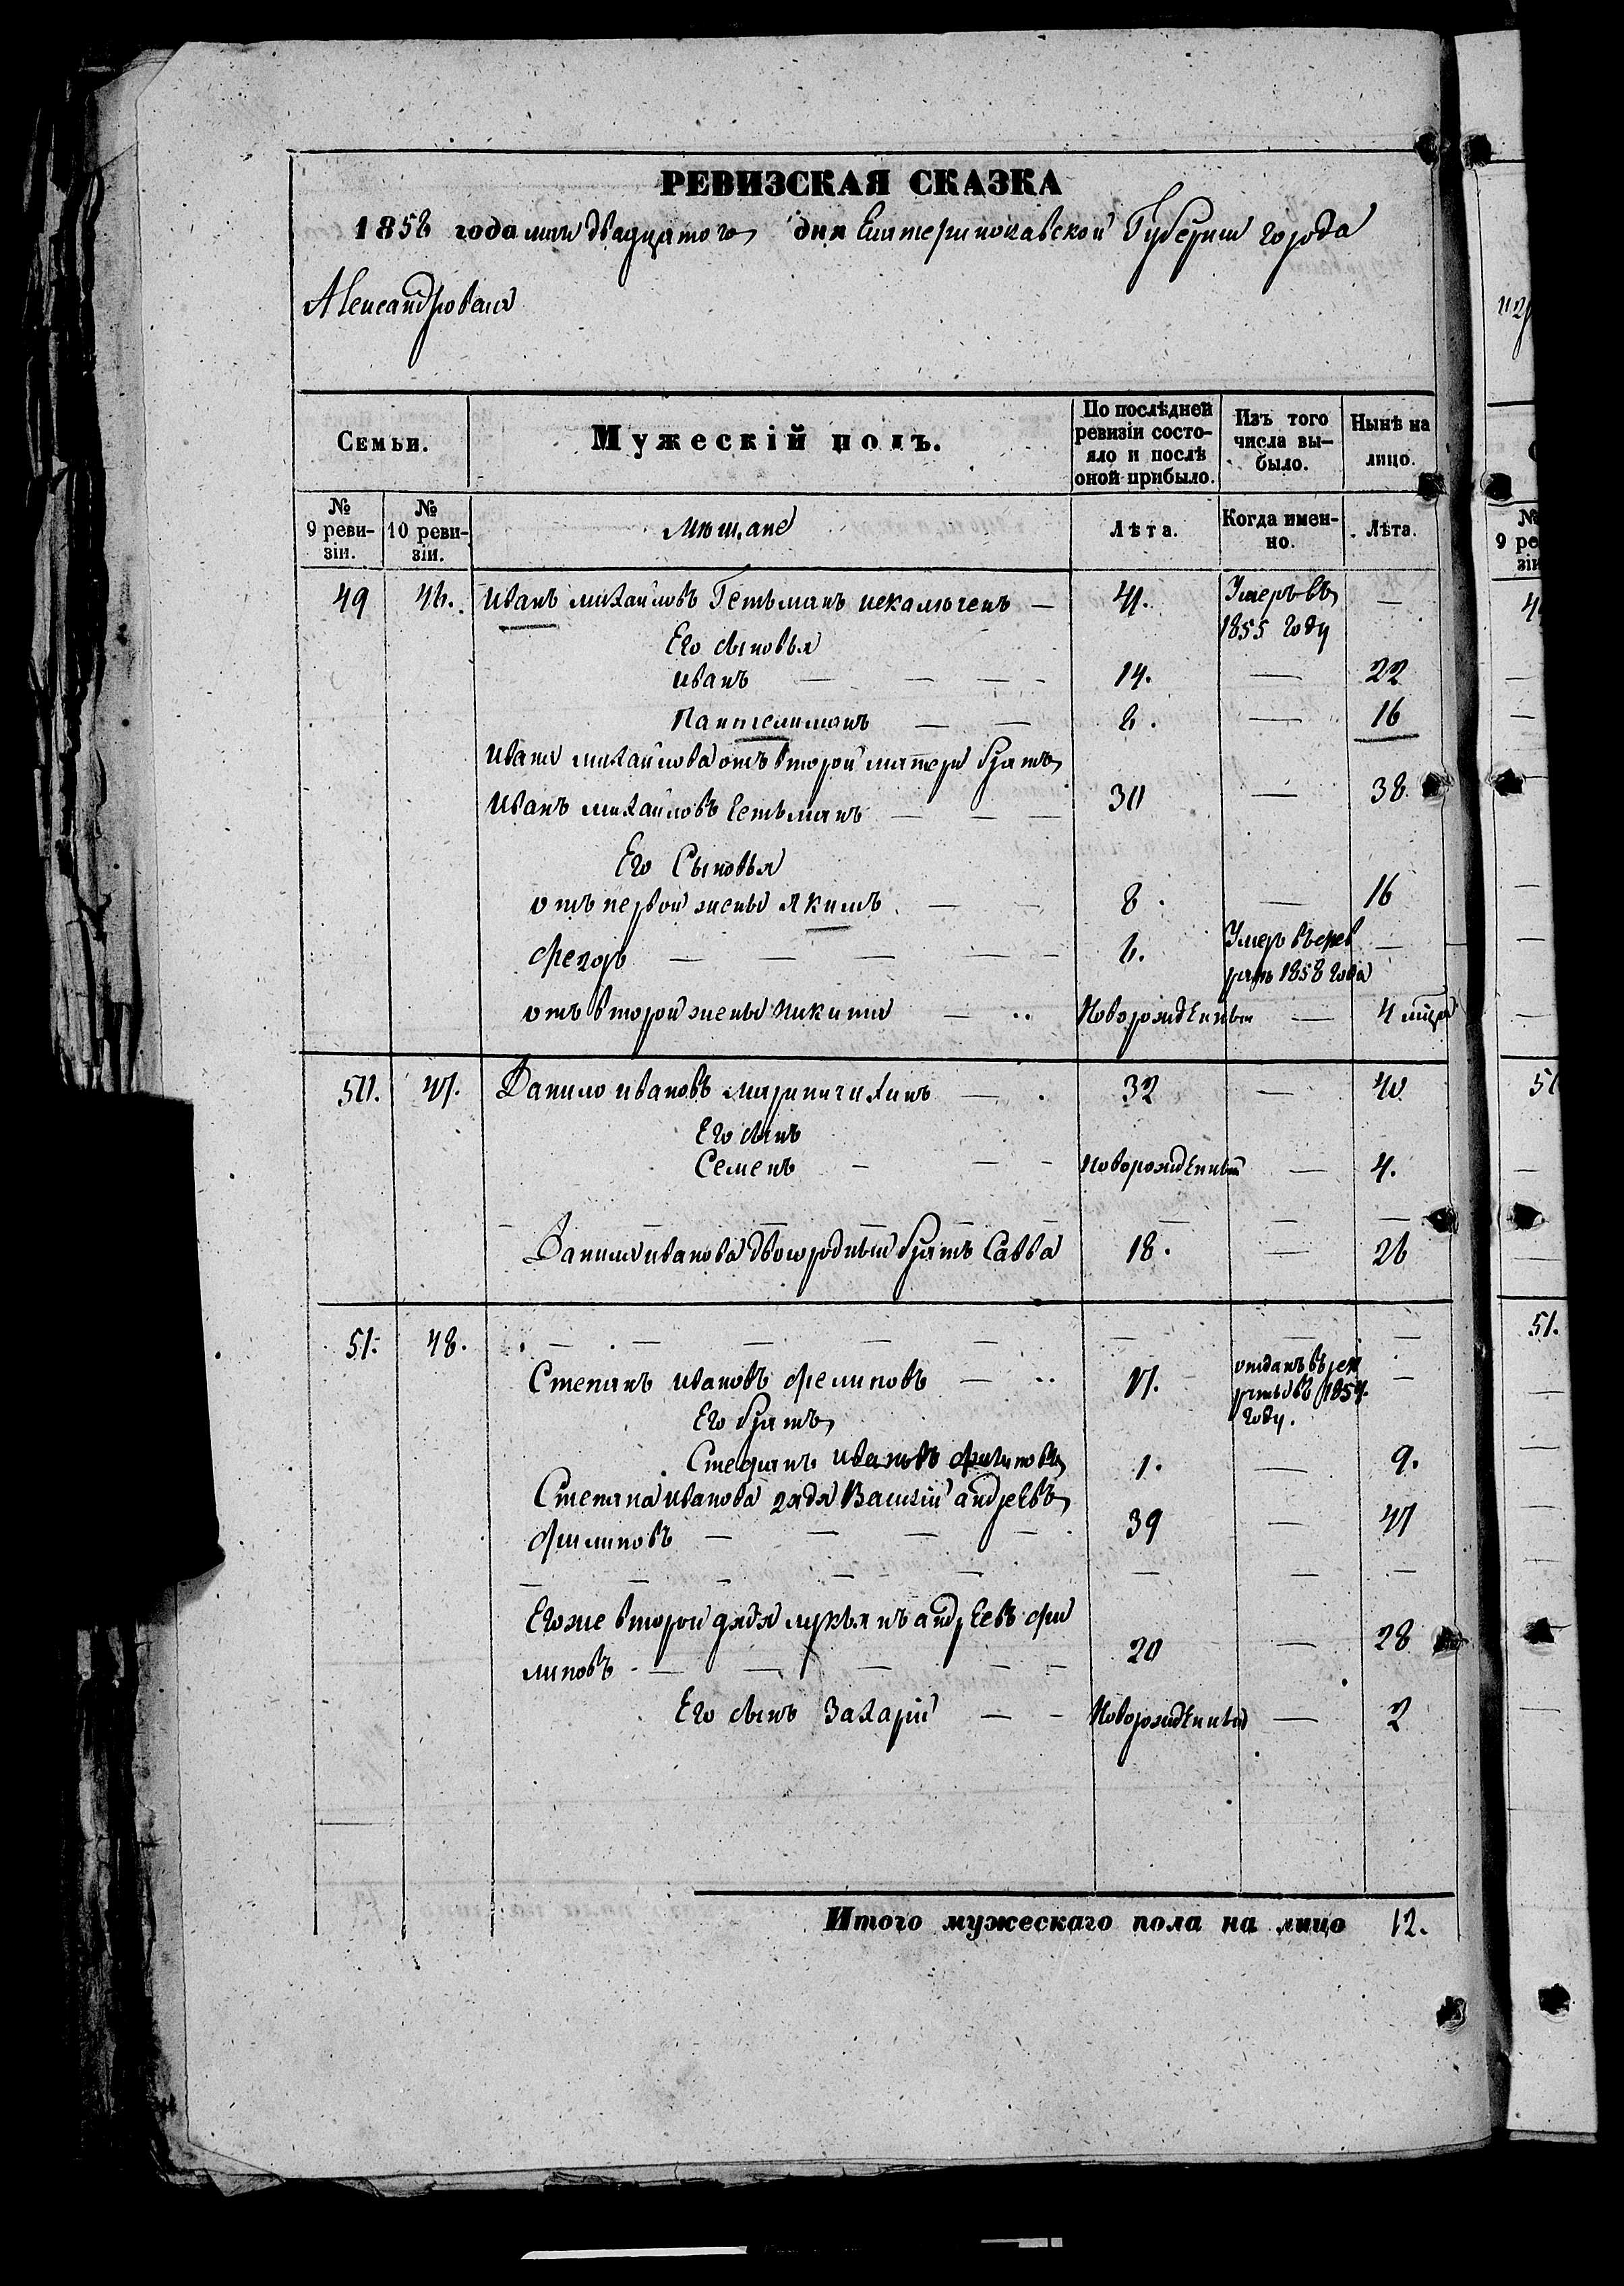 РЕВИЗСКАЯ СКАЗКА
1858 года мая двадцатого дня Екатеринославской Губернии города
Александровска
Семьи.
Мужескій полъ.
По послѣдней ревизіи состояло и послѣ оной прибыло.
Изъ того числа выбыло.
Нынѣ на лицо.
№ 9 ревизіи.
№ 10 ревизіи.
Мѣщане
Лѣта.
Когда именно.
Лѣта.
49 46. Иванъ Михайловъ Гетьманъ — 41. Умеръ въ 1855 году —
Его сыновья
Иванъ — — — — 14. — 22
Пантелимонъ — — 8. — 16
Ивана Михайлова отъ второй матери братъ
Иванъ Михайловъ Гетьманъ — — — 30 — 38
Его Сыновья
отъ первой жены Якимъ — — 8. — 16
Федоръ — — — — — 6. Умеръ въ феврале 1858 года —
отъ второй жены Никита — Новорожденный — 4 мѣсяца
50. 47. Данило Ивановъ — 32 — 40
Его сынъ
Семенъ — — — Новорожденный — 4.
Данила Иванова двоюродный братъ Савва 18. — 26
51. 48. — — — — — — — —
Степанъ Ивановъ Филиповъ — 17. отданъ въ рекруты въ 1854. году. —
Его братъ
Стефанъ Ивановъ Филиповъ 1. — 9.
Степана Иванова дядя Василій Андреевъ
Филиповъ — — — — 39 — 47
Его же второй дядя Лукьянъ Андреевъ Фи
липовъ — — — — — 20 — 28
Его сынъ Захарій — — Новорожденный — 2
Итого мужескаго пола на лицо 12.